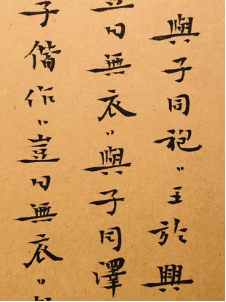 與子同袍〃王於興
曰無衣〃與子同澤
子偕作〃豈曰無衣〃